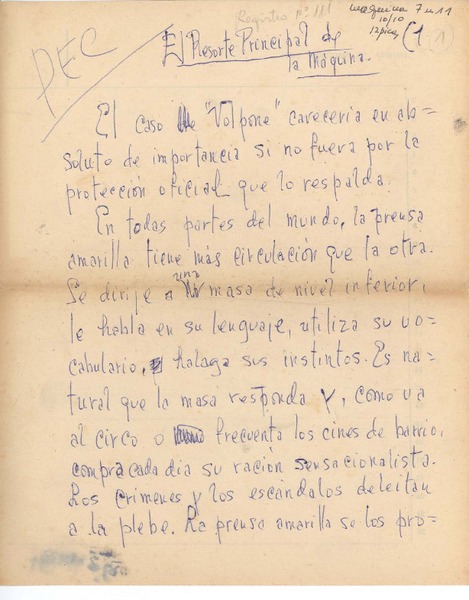 Registro Nº 181
maquina 7 u 11
10/10
12 picas
(1
1)
PEC
El Resorte Principal de
la Máquina.
El caso de "Volpone" carecería en ab=
soluto de importancia si no fuera por la
protección oficial que lo respalda.
En todas partes del mundo, la prensa
amarilla tiene más circulación que la otra.
Se dirije a una masa de nivel inferior,
le habla en su lenguaje, utiliza su vo=
cabulario, halaga sus instintos. Es na=
tural que la masa responda y, como va
al circo o frecuenta los cines de barrio,
compra cada día su ración sensacionalista.
Los crímenes y los escándalos deleitan
a la plebe. La prensa amarilla se los pro=